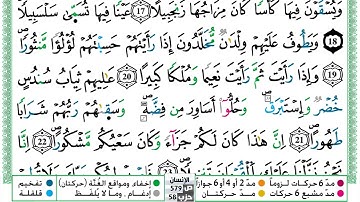 وَيُسْقَوْنَ فِيهَا كَأْسًا كَانَ مِزَاجُهَا زَنجَبِيلًا ١٧ عَيْنًا فِيهَا تُسَمَّىٰ سَلْسَبِيلًا
١٨ وَيَطُوفُ عَلَيْهِمْ وِلْدَٰنٌ مُّخَلَّدُونَ إِذَا رَأَيْتَهُمْ حَسِبْتَهُمْ لُؤْلُؤًا مَّنثُورًا
١٩ وَإِذَا رَأَيْتَ ثَمَّ رَأَيْتَ نَعِيمًا وَمُلْكًا كَبِيرًا ٢٠ عَٰلِيَهُمْ ثِيَابُ سُندُسٍ
خُضْرٌ وَإِسْتَبْرَقٌ وَحُلُّوٓا۟ أَسَاوِرَ مِن فِضَّةٍ وَسَقَىٰهُمْ رَبُّهُمْ شَرَابًا
طَهُورًا ٢١ إِنَّ هَٰذَا كَانَ لَكُمْ جَزَآءً وَكَانَ سَعْيُكُم مَّشْكُورًا ٢٢
مدّ 6 حركات لزوماً مدّ 2 أو 4 أو 6 جوازاً
مدّ مشبع 6 حركات مدّ حركتان
الإنسان
ص 579
حزب 58
إخفاء، ومواقع الغُنَّة (حركتان)
إدغام، وما لا يُلفظ
تفخيم
قلقلة